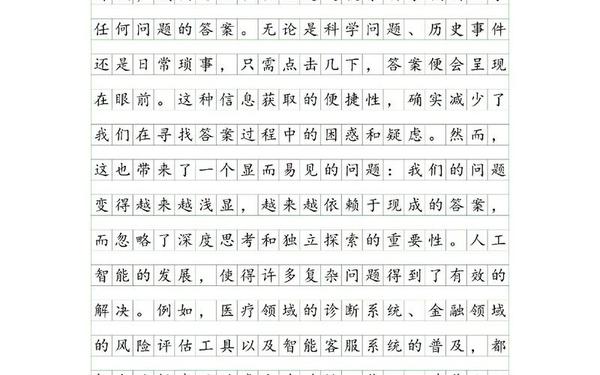 任何问题的答案。无论是科学问题、历史事件
还是日常琐事，只需点击几下，答案便会呈现
在眼前。这种信息获取的便捷性，确实减少了
我们在寻找答案过程中的困惑和疑虑。然而，
这也带来了一个显而易见的问题：我们的问题
变得越来越浅显，越来越依赖于现成的答案，
而忽略了深度思考和独立探索的重要性。人工
智能的发展，使得许多复杂问题得到了有效的
解决。例如，医疗领域的诊断系统、金融领域
的风险评估工具以及智能客服系统的普及，都